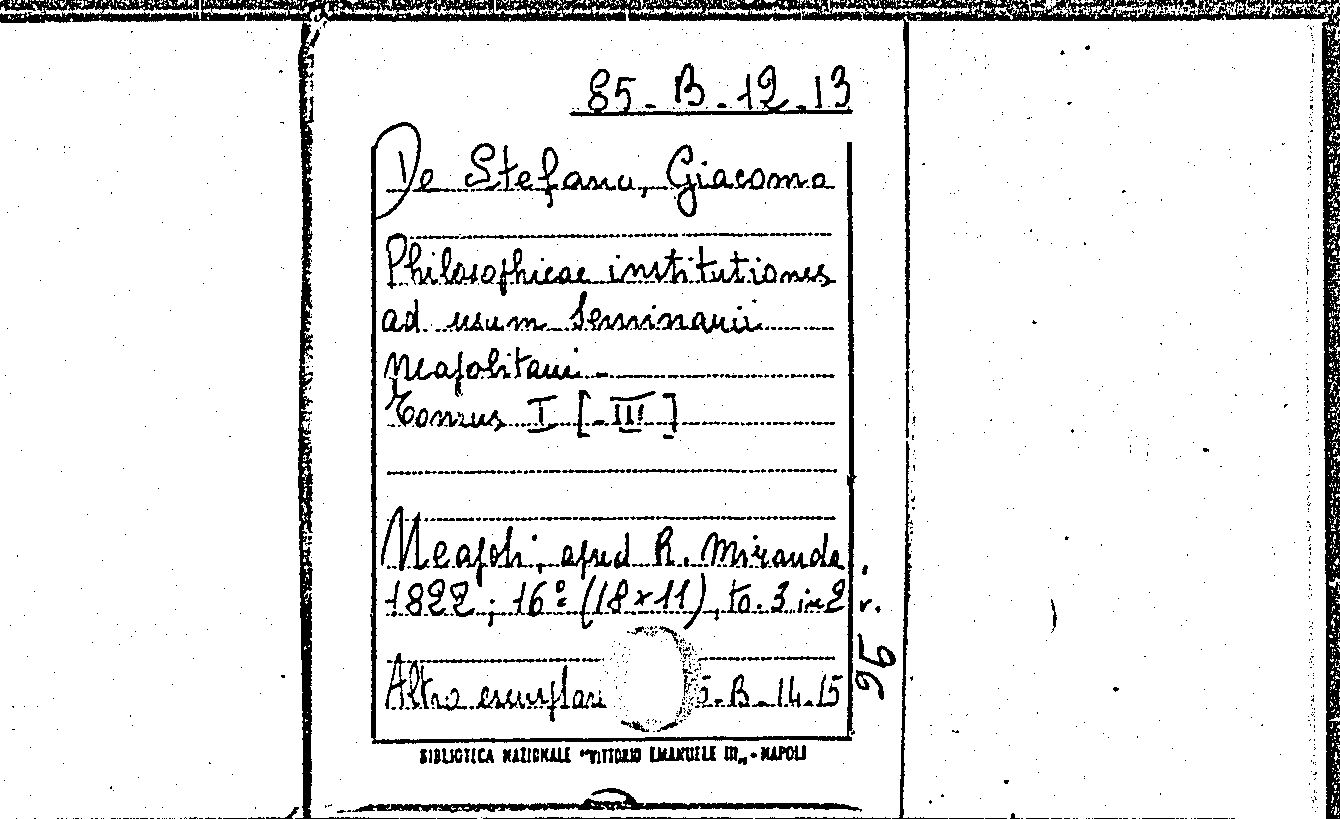 85-B-12.13
De Stefano, Giacomo
Philosophicae institutiones
ad usum Seminarii
Neapolitani -
Tomus I [-III]
Neapoli, apud R. Miranda,
1822; 16º (18x11), to. 3 in 2 v.
Altro esemplare 5-B-14.15
95
BIBLIOTECA NAZIONALE "VITTORIO EMANUELE III„ - NAPOLI